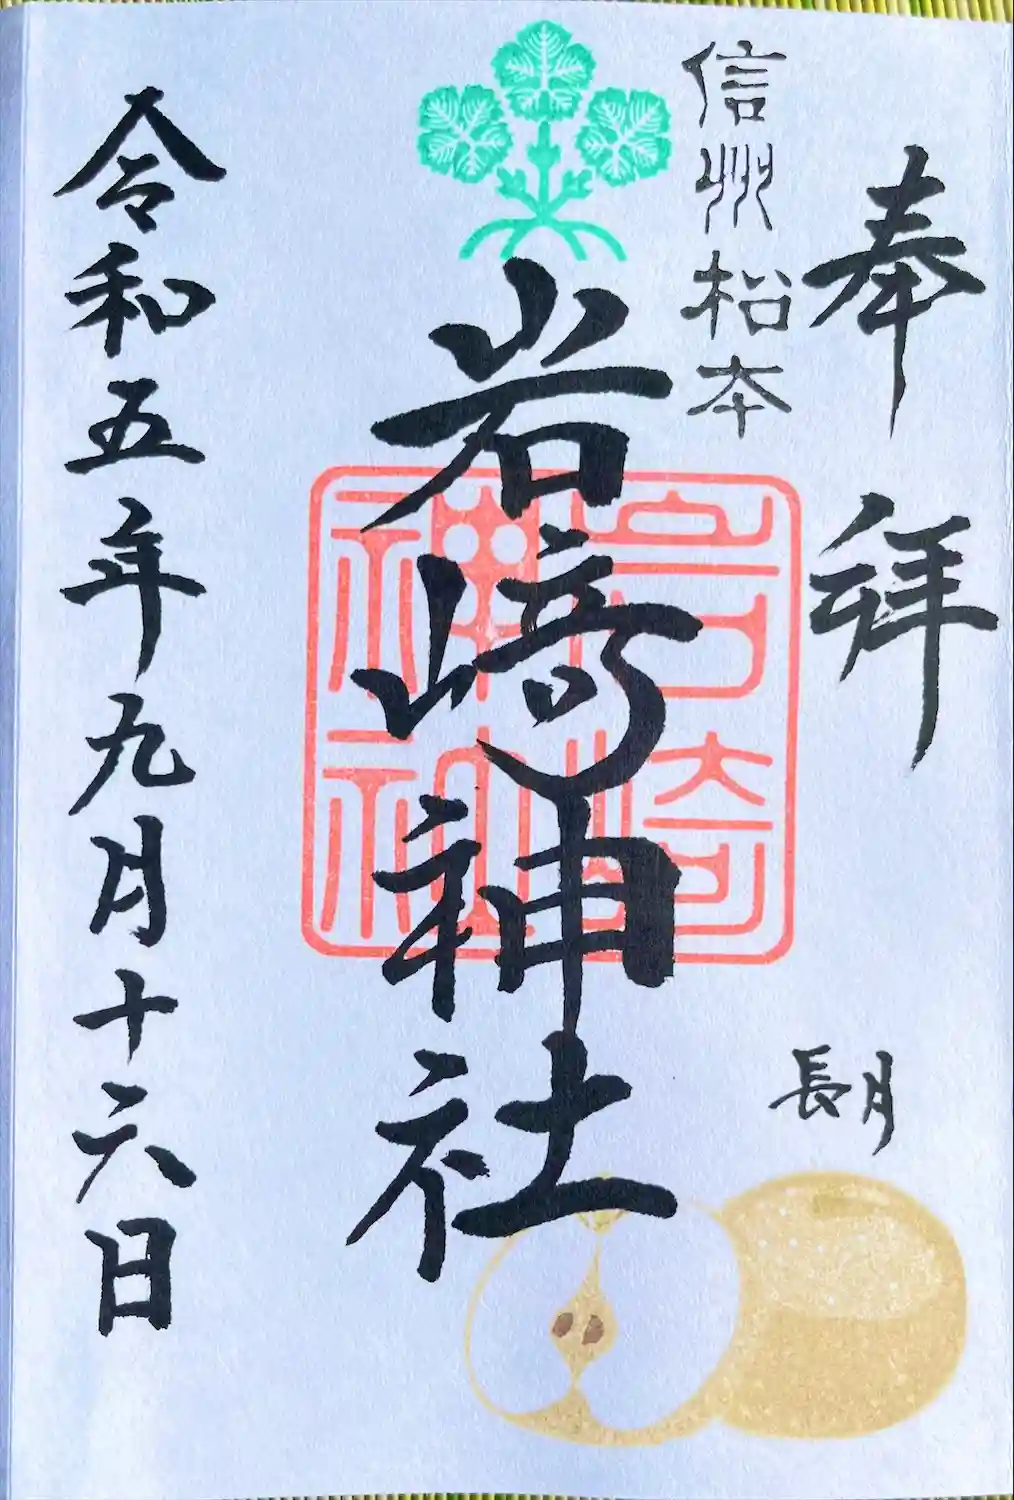 奉拝
信州松本
長月
岩崎神社
岩崎神社
令和五年九月十六日